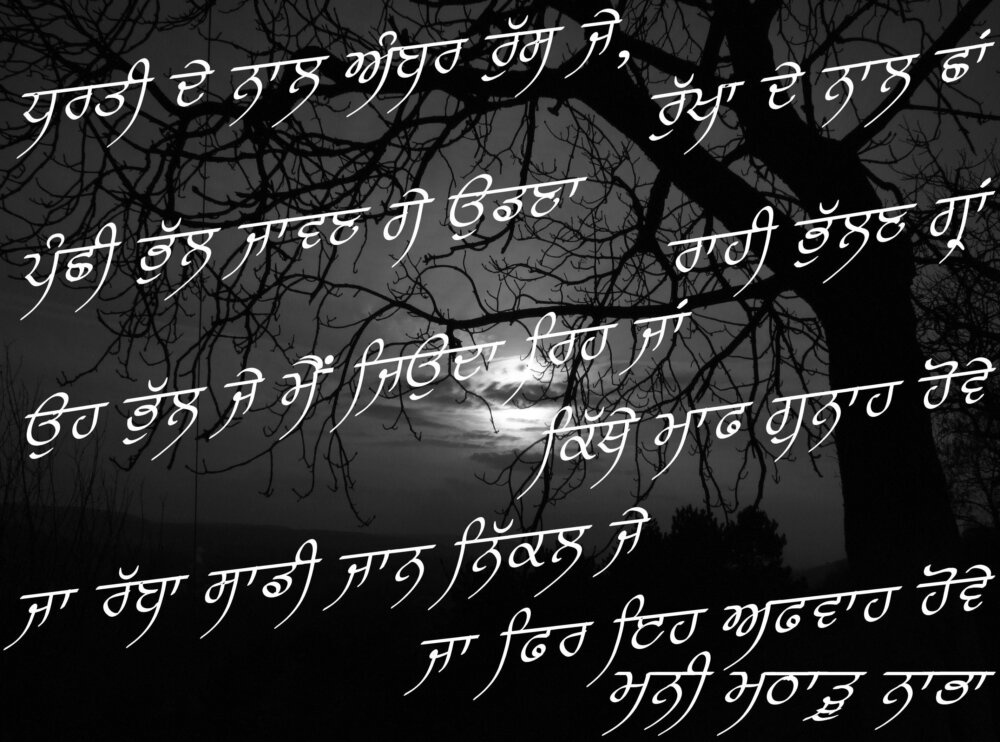 ਧਰਤੀ ਦੇ ਨਾਲ ਅੰਬਰ ਰੁੱਸ ਜੇ,
ਰੁੱਖਾ ਦੇ ਨਾਲ ਛਾਂ
ਪੰਛੀ ਭੁੱਲ ਜਾਵਣ ਜੇ ਉਡਣਾ
ਰਾਹੀ ਭੁੱਲਣ ਗ੍ਰਾਂ
ਉਹ ਭੁੱਲ ਜੇ ਮੈਂ ਜਿਉਦਾ ਰਿਹ ਜਾਂ
ਕਿੱਥੇ ਮਾਫ ਗੁਨਾਹ ਹੋਵੇ
ਜਾ ਰੱਬਾ ਸਾਡੀ ਜਾਨ ਨਿੱਕਲ ਜੇ
ਜਾ ਫਿਰ ਇਹ ਅਫਵਾਹ ਹੋਵੇ
ਮਨੀ ਮਠਾੜੂ ਨਾਭਾ